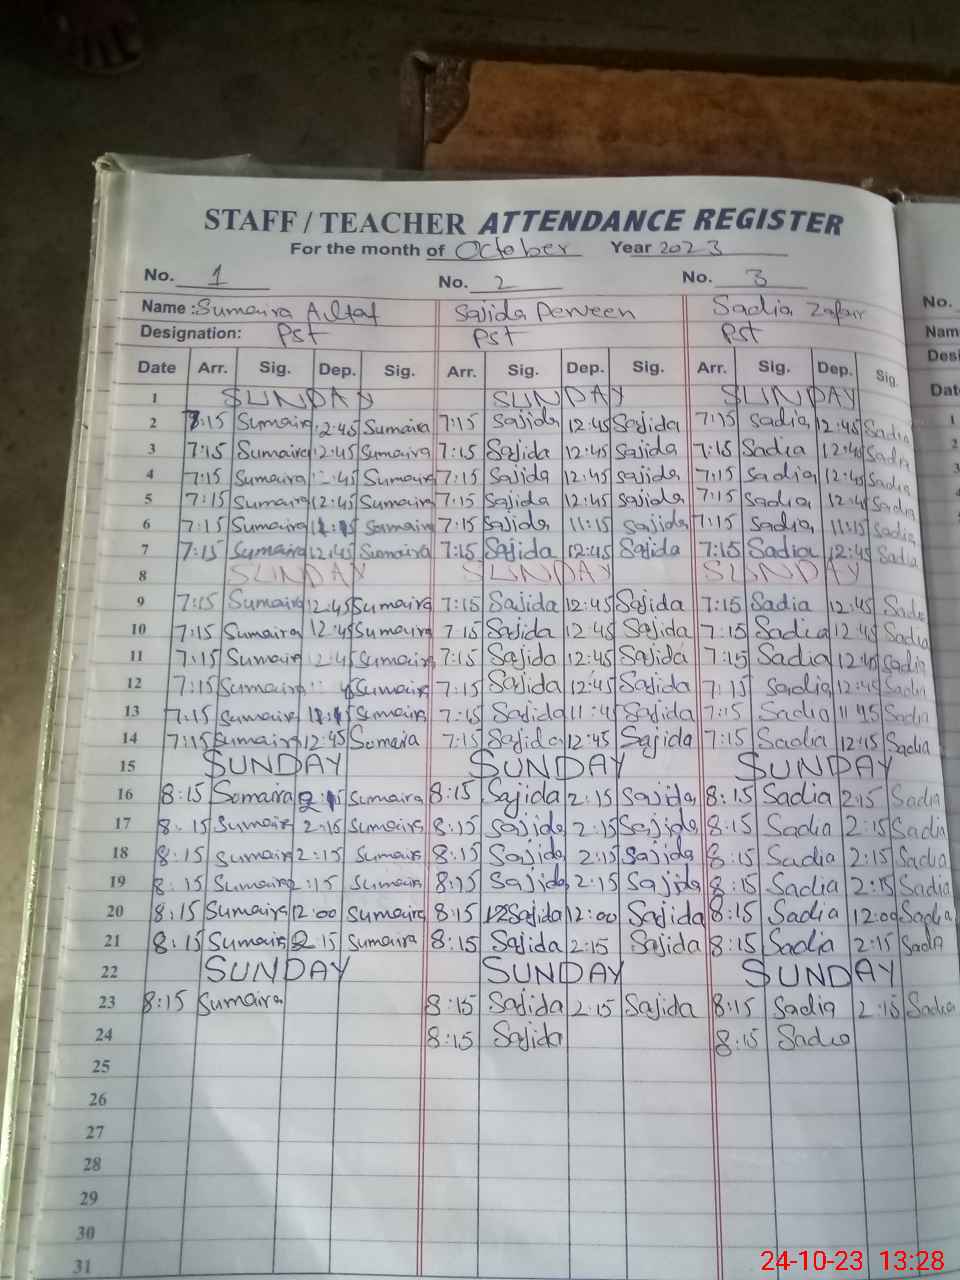 STAFF / TEACHER ATTENDANCE REGISTER
For the month of October Year 2023
No. 1 No. 2 No. 3
No.
Name : Sumaira Altaf Sajida Perveen Sadia Zafar
Nam
Designation: Pst Pst Pst
Desi
Date Arr. Sig. Dep. Sig. Arr. Sig. Dep. Sig. Arr. Sig. Dep. Sig.
Dat
1 SUNDAY SUNDAY SUNDAY
2 7:15 Sumaira 12:45 Sumaira 7:15 Sajida 12:45 Sajida 7:15 Sadia 12:45 Sadia
3 7:15 Sumaira 12:45 Sumaira 7:15 Sajida 12:45 Sajida 7:15 Sadia 12:45 Sadia
4 7:15 Sumaira :45 Sumaira 7:15 Sajida 12:45 Sajida 7:15 Sadia 12:45 Sadia
5 7:15 Sumaira 12:45 Sumaira 7:15 Sajida 12:45 Sajida 7:15 Sadia 12:45 Sadia
6 7:15 Sumaira 11:15 Sumaira 7:15 Sajida 11:15 Sajida 7:15 Sadia 11:15 Sadia
7 7:15 Sumaira 12:45 Sumaira 7:15 Sajida 12:45 Sajida 7:15 Sadia 12:45 Sadia
8 SUNDAY SUNDAY SUNDAY
9 7:15 Sumaira 12:45 Sumaira 7:15 Sajida 12:45 Sajida 7:15 Sadia 12:45 Sadia
10 7:15 Sumaira 12:45 Sumaira 7:15 Sajida 12:45 Sajida 7:15 Sadia 12:45 Sadia
11 7:15 Sumaira 12:45 Sumaira 7:15 Sajida 12:45 Sajida 7:15 Sadia 12:45 Sadia
12 7:15 Sumaira Sumaira 7:15 Sajida 12:45 Sajida 7:15 Sadia 12:45 Sadia
13 7:15 Sumaira Sumaira 7:15 Sajida 11:45 Sajida 7:15 Sadia 11:45 Sadia
14 7:15 Sumaira 12:45 Sumaira 7:15 Sajida 12:45 Sajida 7:15 Sadia 12:15 Sadia
15 SUNDAY SUNDAY SUNDAY
16 8:15 Somaira 2:15 Sumaira 8:15 Sajida 2:15 Sajida 8:15 Sadia 2:15 Sadia
17 8:15 Sumaira 2:15 Sumaira 8:15 Sajida 2:15 Sajida 8:15 Sadia 2:15 Sadia
18 8:15 Sumaira 2:15 Sumaira 8:15 Sajida 2:15 Sajida 8:15 Sadia 2:15 Sadia
19 8:15 Sumaira 2:15 Sumaira 8:15 Sajida 2:15 Sajida 8:15 Sadia 2:15 Sadia
20 8:15 Sumaira 12:00 Sumaira 8:15 12 Sajida 12:00 Sajida 8:15 Sadia 12:00 Sadia
21 8:15 Sumaira 2:15 Sumaira 8:15 Sajida 2:15 Sajida 8:15 Sadia 2:15 Sadia
22 SUNDAY SUNDAY SUNDAY
23 8:15 Sumaira 8:15 Sajida 2:15 Sajida 8:15 Sadia 2:15 Sadia
24 8:15 Sajida 8:15 Sadia
25
26
27
28
29
30
31
24-10-23 13:28